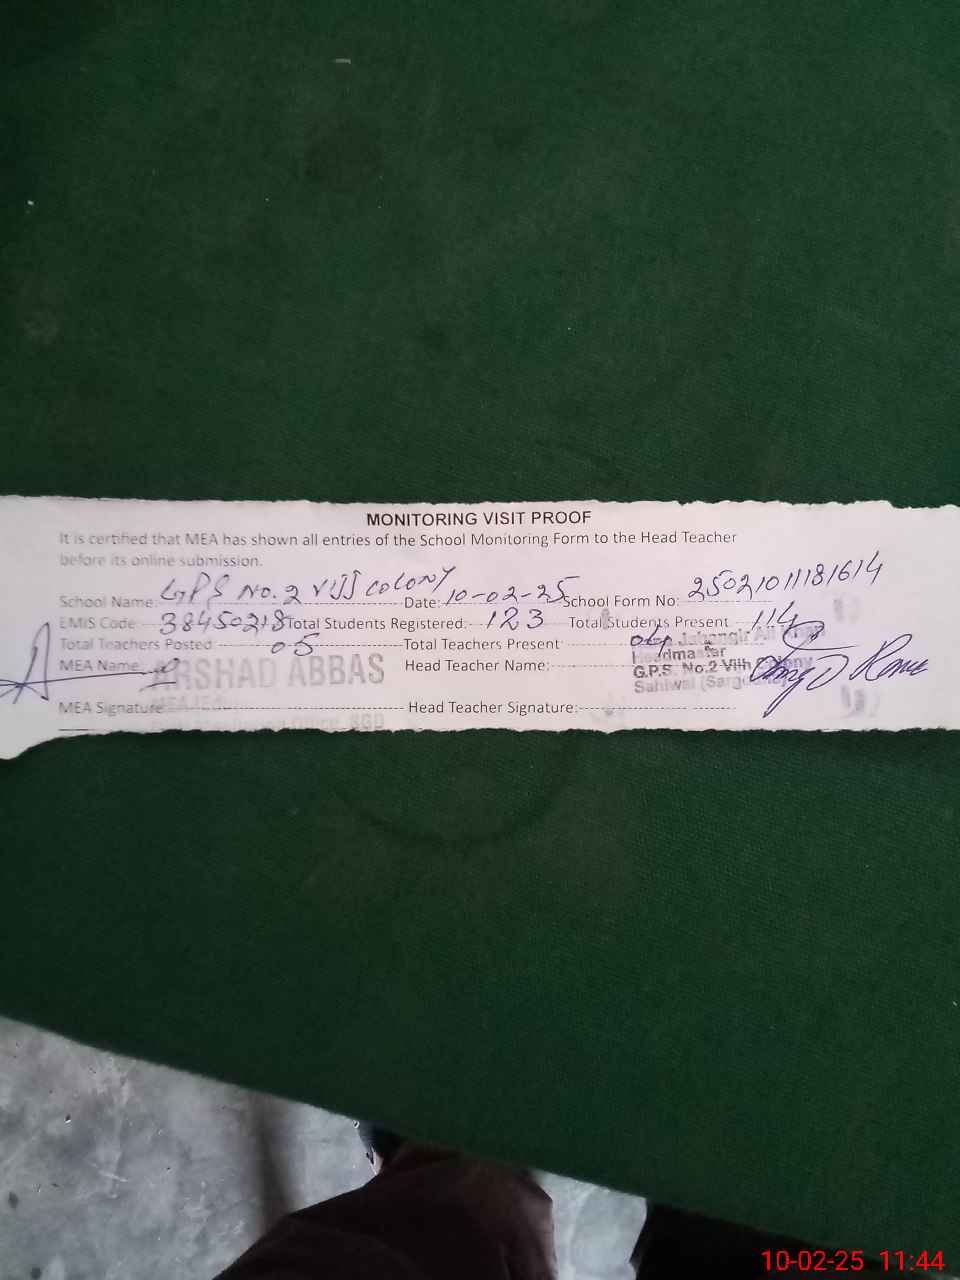 MONITORING VISIT PROOF
It is certified that MEA has shown all entries of the School Monitoring Form to the Head Teacher
before its online submission.
School Name: GPS No. 2 VIJJ COLONY Date: 10-02-25 School Form No: 25021011181614
EMIS Code 38450218 Total Students Registered: 123 Total Students Present 114
Total Teachers Posted 05 Total Teachers Present
MEA Name ARSHAD ABBAS Head Teacher Name:
Jahangir Ali
Headmaster
G.P.S. No.2 Vijh Colony
Sahiwal (Sargodha)
MEA Signature Head Teacher Signature:
10-02-25 11:44